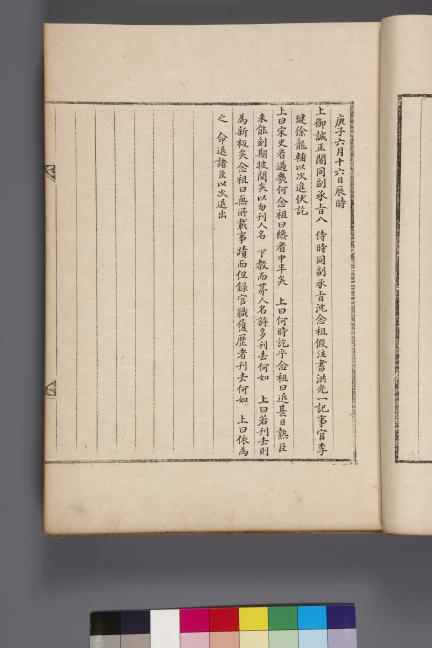 庚子六月十六日辰時
上御誠正閤同副承旨入 侍時同副承旨沈念祖假注書洪光一記事官李
徐龍輔以次進伏訖
上曰宋史考過幾何念祖曰纔考中半矣 上曰何時訖乎念祖曰近甚日熱臣
未能刻期披閱矣以勿刊人名 下敎而第人名許多刊去何如 上曰若刊去則
為新板矣念祖曰無所載事蹟而但錄官職履歷者刊去何如 上曰依為
之 命退諸臣以次退出